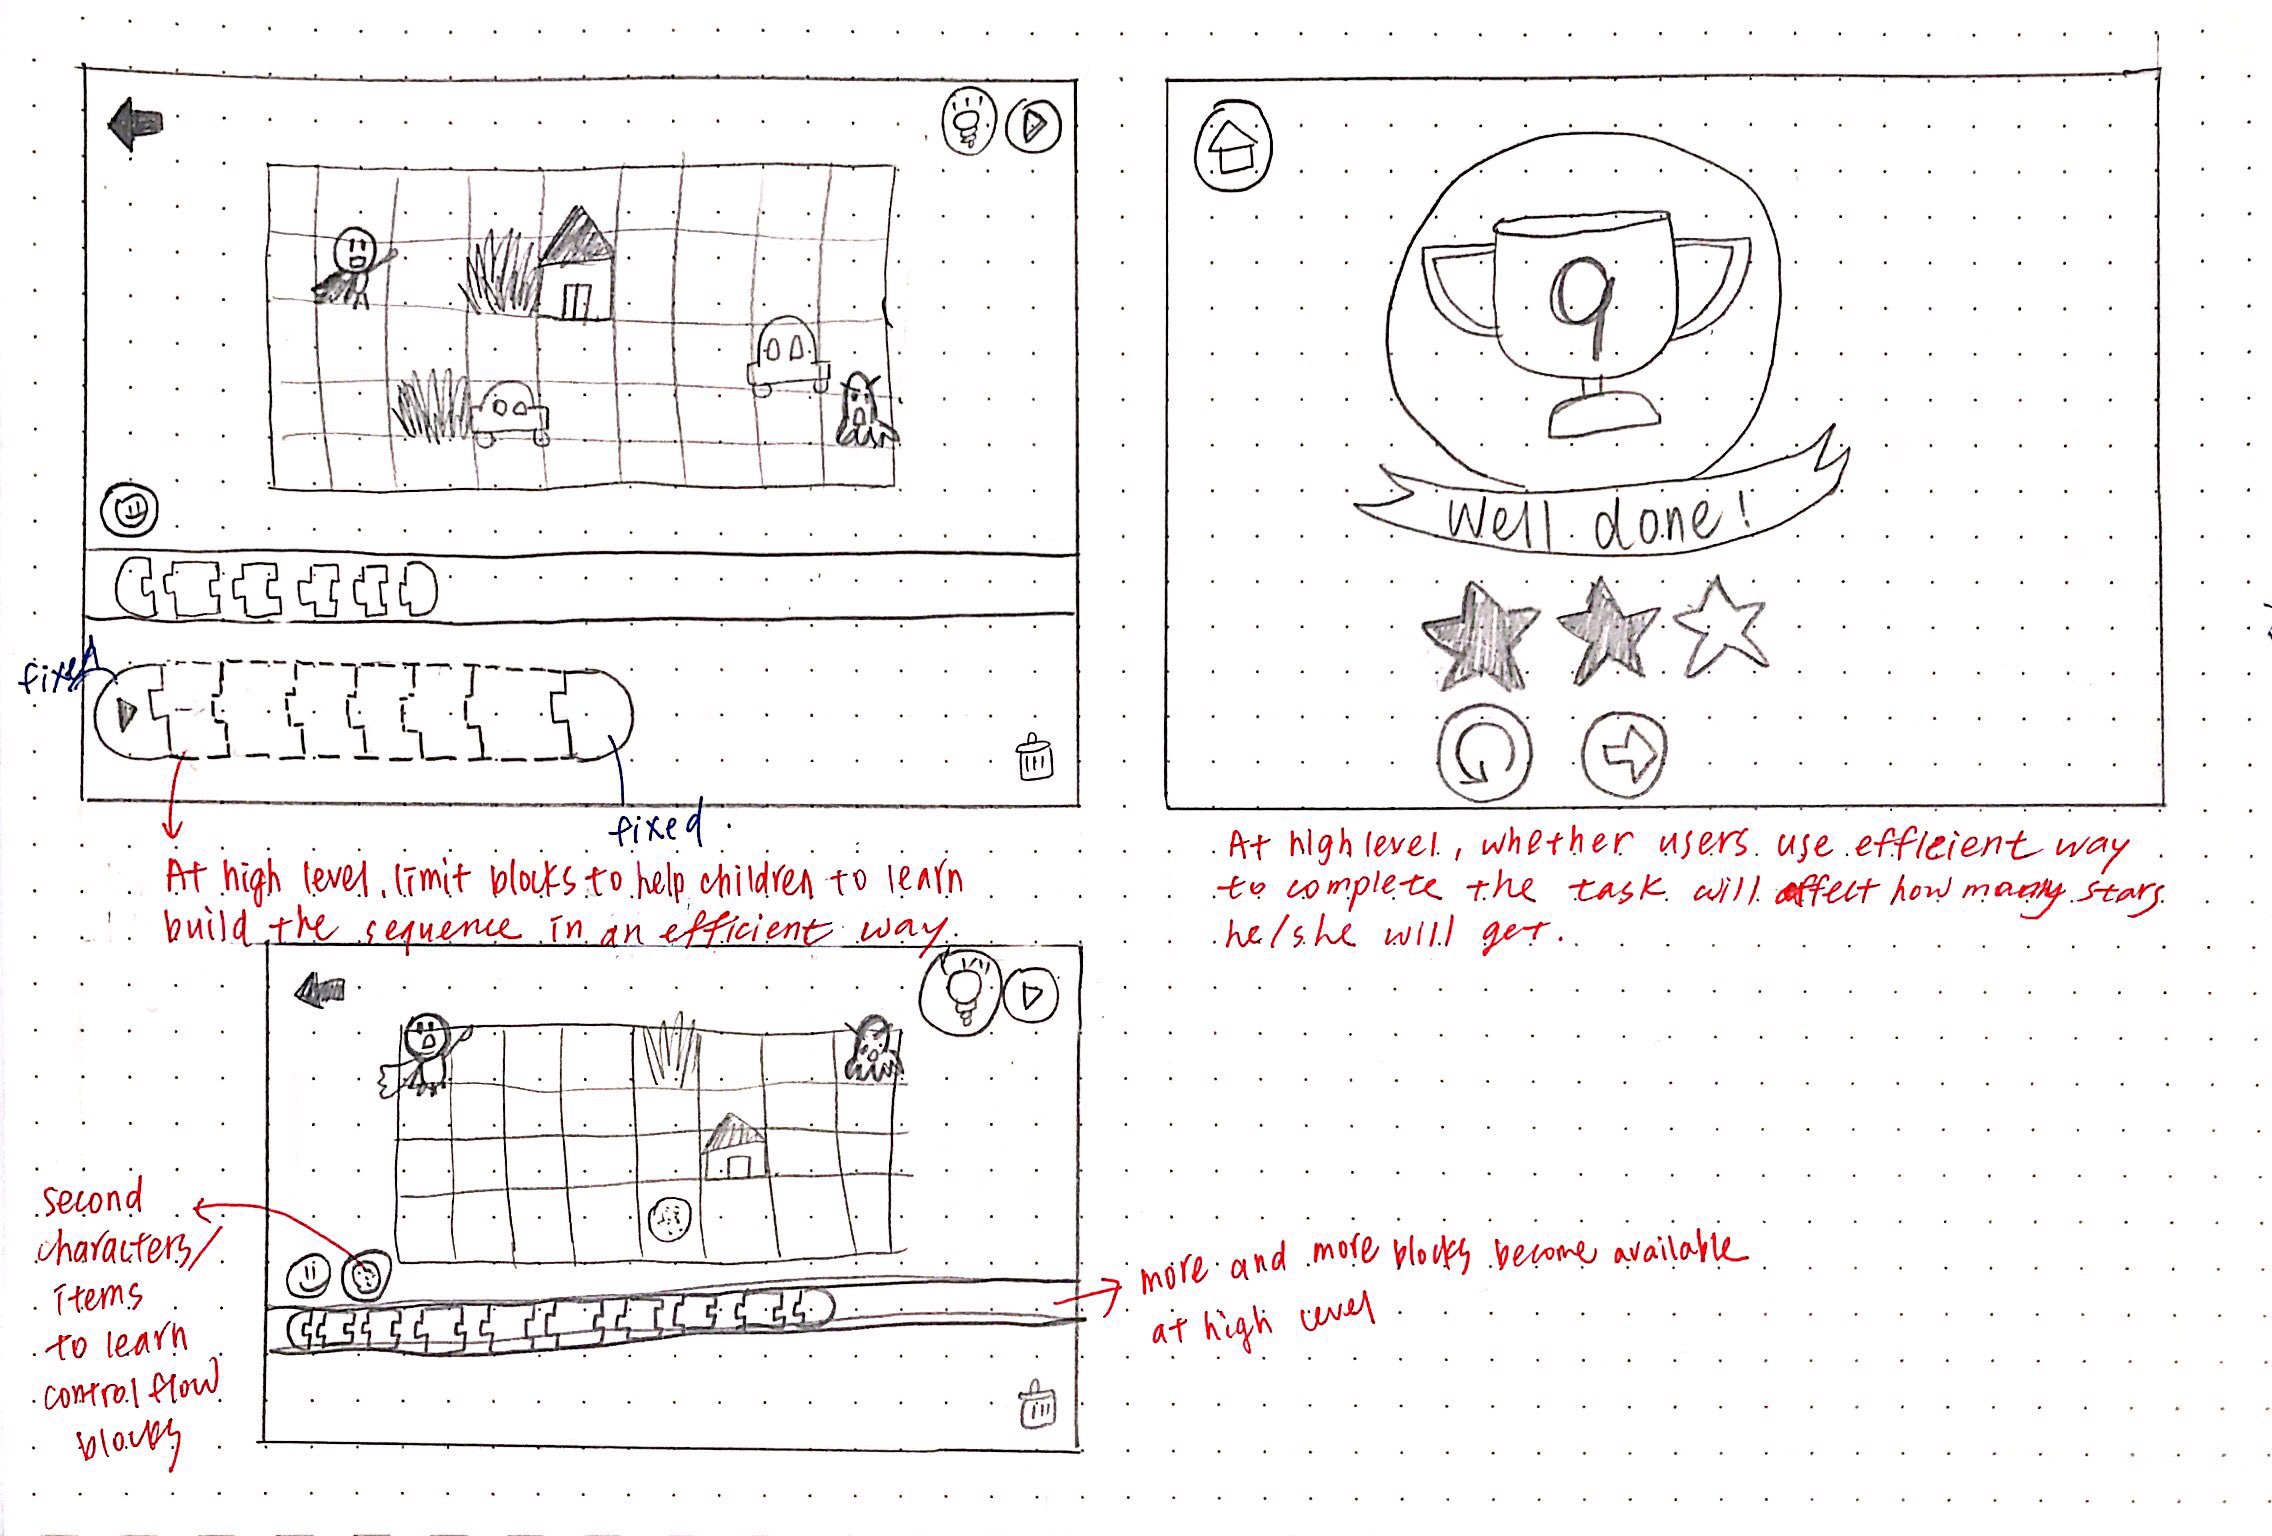 9
Well done!
fixed
fixed.
At high level, limit blocks to help children to learn
build the sequence in an efficient way.
At high level, whether users use effieient way
to complete the task will affect how many stars
he/she will get.
second
characters/
items
to learn
control flow
blocks
more and more blocks become available
at high level